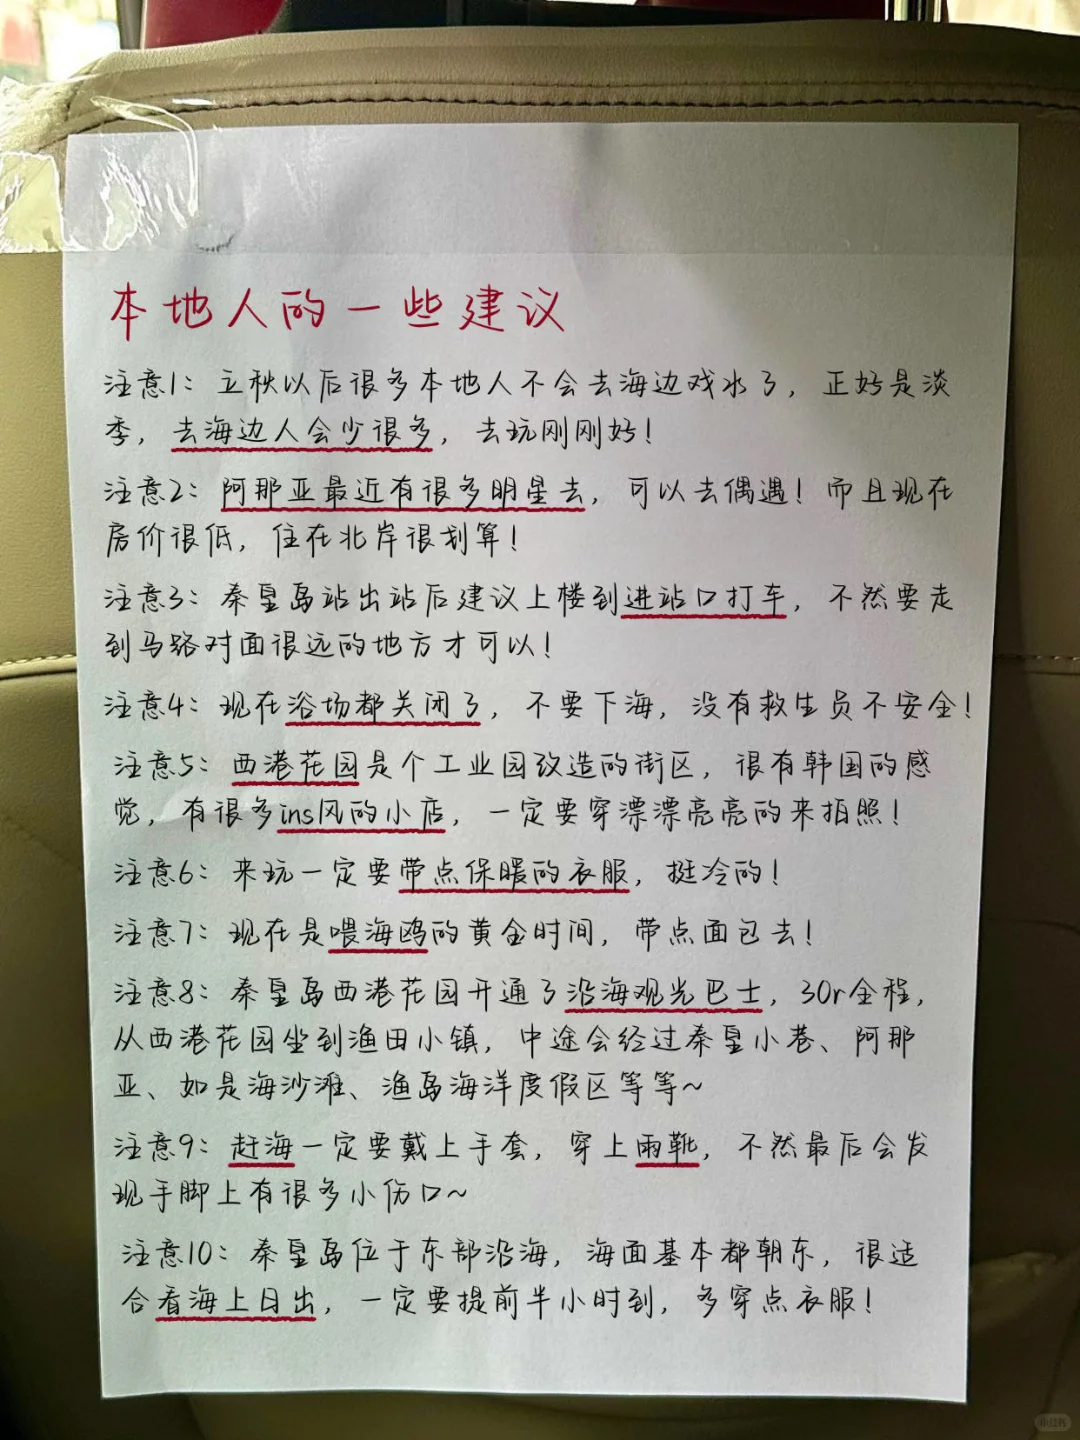 本地人的一些建议
注意1：立秋以后很多本地人不会去海边戏水了，正好是淡
季，去海边人会少很多，去玩刚刚好！
注意2：阿那亚最近有很多明星去，可以去偶遇！而且现在
房价很低，住在北岸很划算！
注意3：秦皇岛站出站后建议上楼到进站口打车，不然要走
到马路对面很远的地方才可以！
注意4：现在浴场都关闭了，不要下海，没有救生员不安全！
注意5：西港花园是个工业园改造的街区，很有韩国的感
觉，有很多ins风的小店，一定要穿漂漂亮亮的来拍照！
注意6：来玩一定要带点保暖的衣服，挺冷的！
注意7：现在是喂海鸥的黄金时间，带点面包去！
注意8：秦皇岛西港花园开通了沿海观光巴士，30r全程，
从西港花园坐到渔田小镇，中途会经过秦皇小巷、阿那
亚、如是海沙滩、渔岛海洋度假区等等~
注意9：赶海一定要戴上手套，穿上雨靴，不然最后会发
现手脚上有很多小伤口~
注意10：秦皇岛位于东部沿海，海面基本都朝东，很适
合看海上日出，一定要提前半小时到，多穿点衣服！
小红书